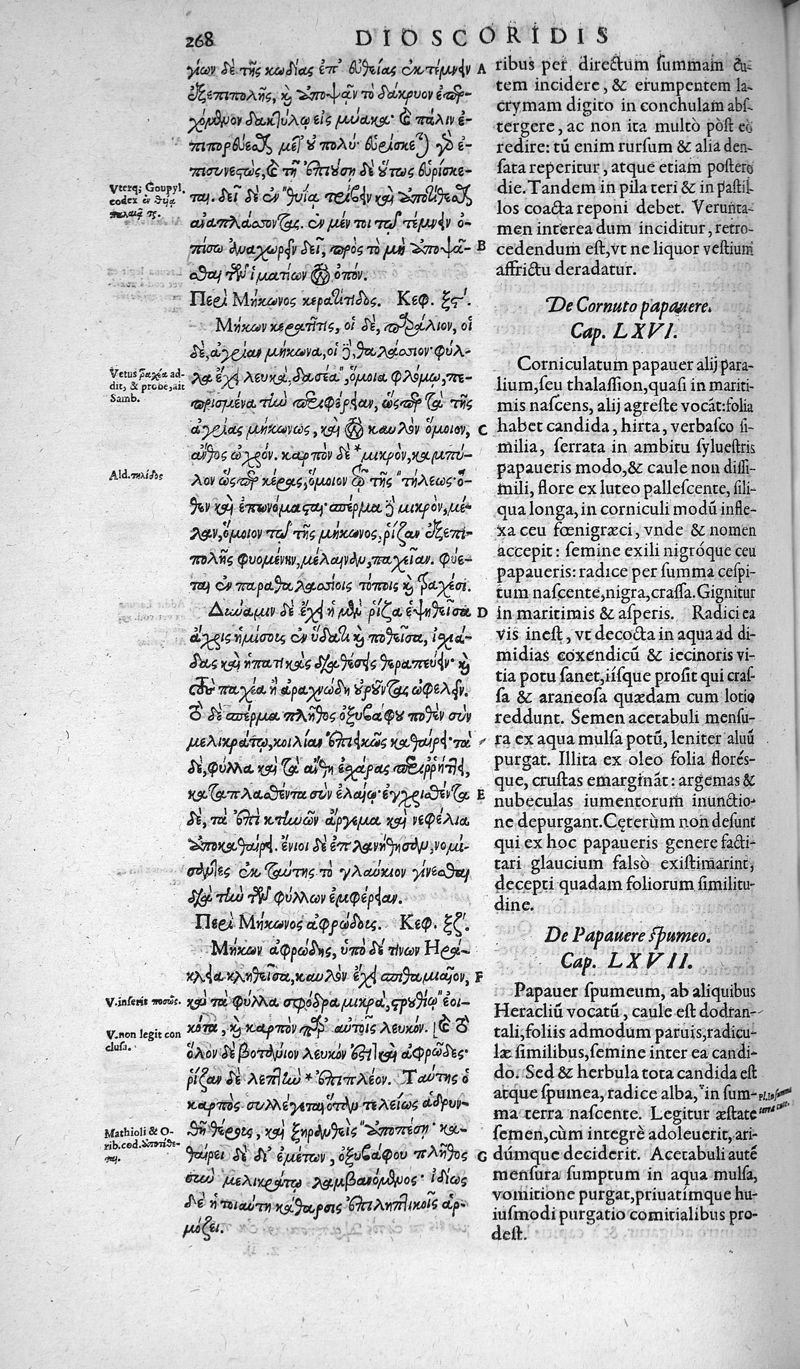 268 DIOSCORIDIS
γίων δὲ τῆς κωδίας ἐπ' εὐθείας ἐκτέμνειν
ἐξεπιπολῆς, καὶ ἀποψᾶν τὸ δάκρυον ἐπερ-
χόμενον δακτύλῳ εἰς μύακα· καὶ πάλιν ἐ-
μετ' οὐ πολύ· εὑρίσκεται γὸ ἐ-
καὶ τῇ ἐπιούσῃ δὲ οὕτως εὑρίσκε-
ται. δεῖ δὲ ἐν "θυίᾳ τρίβειν καὶ ἀποτίθεσθαι
ἀναπλάσσοντας. ἐν μέν τοι τῷ τέμνειν ὀ-
πίσω ἀναχωρεῖν δεῖ, πρὸς τὸ μὴ ἀποψᾶ-
σθαι τῶν ἱματίων τὸν ὀπόν.
Περὶ Μήκωνος κερατίτιδος. Κεφ. ξϛ'.
Μήκων κερατῖτις, οἱ δὲ, παράλιον, οἱ
δὲ, ἀγρίαν μήκωνα, οἱ δὲ, θαλάσσιον· φύλ-
λα ἔχει λευκὰ, δασέα", ὅμοια φλόμῳ, πε-
πρισμένα τὴν περιφέρειαν, ὥσπερ τὰ τῆς
ἀγρίας μήκωνος, καὶ τὸν καυλὸν ὅμοιον,
ἄνθος ὠχρόν. καρπὸν δὲ * μικρὸν, καμπύ-
λον ὥσπερ κέρας, ὅμοιον τῷ τῆς "τήλεως· ὅ-
θεν καὶ ἐπωνόμασται· σπέρμα δὲ μικρὸν, μέ-
λαν, ὅμοιον τῷ τῆς μήκωνος, ῥίζαν ἐξεπι-
πολῆς φυομένην, μέλαιναν, παχεῖαν. φύε-
ται ἐν παραθαλασσίοις τόποις καὶ τραχέσι.
Δύναμιν δὲ ἔχει ἡ μὲν ῥίζα ἑψηθεῖσα
ἄχρις ἡμίσους ἐν ὕδατι καὶ ποθεῖσα, ἰσχιά-
δας καὶ ἡπατικὰς διαθέσεις θεραπεύειν· καὶ
τοὺς παχέα ἢ ἀραχνώδη οὐροῦντας ὠφελεῖν.
τὸ δὲ σπέρμα πλῆθος ὀξυβάφου ποθὲν σὺν
μελικράτῳ, κοιλίαν ἐπιεικῶς καθαίρει· τὰ
δὲ, φύλλα καὶ τὰ ἄνθη ἐσχάρας περιῤῥήττει,
καταπλασθέντα σὺν ἐλαίῳ· ἐγχρισθέντα
δὲ, τὰ ἐπὶ κτηνῶν ἄργεμα καὶ νεφέλια
ἀποκαθαίρει. ἔνιοι δὲ ἐπλανήθησαν, νομί-
σαντες ἐκ ταύτης τὸ γλαύκιον γίνεσθαι
διὰ τὴν τῶν φύλλων ἐμφέρειαν.
Περὶ Μήκωνος ἀφρώδεις. Κεφ. ξζ'.
Μήκων ἀφρώδης, ὑπὸ δέ τινων Ἡρά-
κλεια κληθεῖσα, καυλὸν ἔχει σπιθαμιαῖον,
καὶ τὰ φύλλα σφόδρα μικρὰ, στρουθίῳ" ἐοι-
κότα, καὶ καρπὸν παρ' αὐτοῖς λευκόν. [καὶ τὸ
ὅλον δὲ βοτάνιον λευκόν ἐστι] καὶ ἀφρῶδες·
ῥίζαν δὲ λεπτὴν * ἐπιπλέον. Ταύτης ὁ
καρπὸς συλλέγεται ὅταν τελείως ἁδρυν-
θῇ θέρεις, καὶ ξηρανθεὶς "ἀποπέσῃ· κα-
θαίρει δὲ δι' ἐμέτων, ὀξυβάφου πλῆθος
σὺν μελικράτῳ λαμβανόμενος· ἰδίως
δὲ ἡ τοιαύτη κάθαρσις ἐπιληπτικοῖς ἁρ-
μόζει.
Vterq; Goupyl.
codex ἐν θυίᾳ
Vetus τραχέα ad-
dit, & probè, ait
Samb.
Ald. τήλιδος
V. inserit ποσῶς.
V. non legit con
clusa.
Mathioli & O-
rib. cod. ἀποπίπτε-
A
B
C
D
E
F
G
ribus per directum summam cu-
tem incidere, & erumpentem la-
crymam digito in conchulam abs-
tergere, ac non ita multò pòst eò
redire: tũ enim rursum & alia den-
sata reperitur, atque etiam postero
die. Tandem in pila teri & in pastil
los coacta reponi debet. Verunta-
men interea dum inciditur, retro-
cedendum est, vt ne liquor vestium
affrictu deradatur.
De Cornuto papauere.
Cap. LXVI.
Corniculatum papauer alij para-
lium, seu thalassion, quasi in mariti-
mis nascens, alij agreste vocãt: folia
habet candida, hirta, verbasco si-
milia, serrata in ambitu syluestris
papaueris modo, & caule non dissi-
mili, flore ex luteo pallescente, sili-
qua longa, in corniculi modũ infle-
xa ceu fœnigræci, vnde & nomen
accepit: semine exili nigróque ceu
papaueris: radice per summa cespi-
tum nascente, nigra, crassa. Gignitur
in maritimis & asperis. Radici ea
vis inest, vt decocta in aqua ad di-
midias coxendicũ & iecinoris vi-
tia potu sanet, iísque prosit qui cras-
sa & araneosa quædam cum lotio
reddunt. Semen acetabuli mensu-
ra ex aqua mulsa potũ, leniter aluũ
purgat. Illita ex oleo folia florés-
que, crustas emarginãt: argemas &
nubeculas iumentorum inunctio-
ne depurgant. Cęterùm non desunt
qui ex hoc papaueris genere facti-
tari glaucium falsò existimarint,
decepti quadam foliorum similitu-
dine.
De Papauere spumeo.
Cap. LXVII.
Papauer spumeum, ab aliquibus
Heracliũ vocatũ, caule est dodran-
tali, foliis admodum paruis, radicu-
læ similibus, semine inter ea candi-
do. Sed & herbula tota candida est
atque spumea, radice alba, "in sum-
ma terra nascente. Legitur æstate
semen, cùm integrè adoleuerit, ari-
dúmque deciderit. Acetabuli autẽ
mensura sumptum in aqua mulsa,
vomitione purgat, priuatímque hu-
iusmodi purgatio comitialibus pro-
dest.